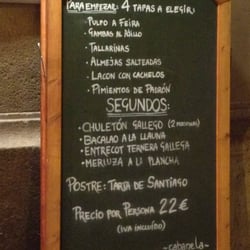 PARA EMPEZAR: 4 TAPAS A ELEGIR:
- PULPO A FEIRA
- GAMBAS AL AJILLO
- TALLARINAS
- ALMEJAS SALTEADAS
- LACON CON CACHELOS
- PIMIENTOS DE PADRÓN
SEGUNDOS:
- CHULETÓN GALLEGO (2 PERSONAS)
- BACALAO A LA LLAUNA
- ENTRECOT TERNERA GALLEGA
- MERLUZA A LA PLANCHA
POSTRE: TARTA DE SANTIAGO
PRECIO POR PERSONA 22€
(IVA INCLUÍDO)
-cabanela-